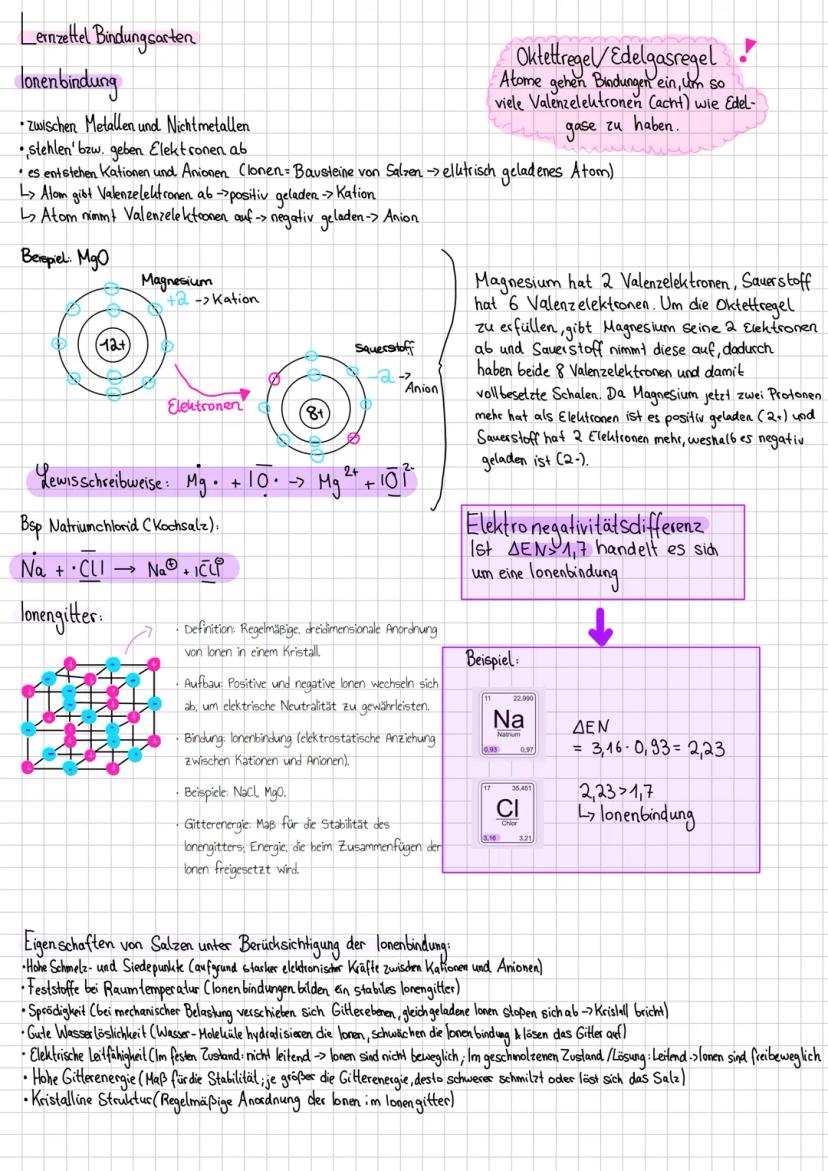 Lernzettel Bindungsarten
Ionenbindung
Oktettregel/Edelgasregel !
Atome gehen Bindungen ein, um so
viele Valenzelektronen (acht) wie Edel-
gase zu haben.
• zwischen Metallen und Nichtmetallen
• „stehlen' bzw. geben Elektronen ab
• es entstehen Kationen und Anionen (Ionen = Bausteine von Salzen → elektrisch geladenes Atom)
↳ Atom gibt Valenzelektronen ab → positiv geladen → Kation
↳ Atom nimmt Valenzelektronen auf → negativ geladen → Anion
Beispiel: MgO
Magnesium
+2 → Kation
12+
Sauerstoff
-2 →
Anion
8+
Elektronen
Magnesium hat 2 Valenzelektronen, Sauerstoff
hat 6 Valenzelektronen. Um die Oktettregel
zu erfüllen, gibt Magnesium seine 2 Elektronen
ab und Sauerstoff nimmt diese auf, dadurch
haben beide 8 Valenzelektronen und damit
vollbesetzte Schalen. Da Magnesium jetzt zwei Protonen
mehr hat als Elektronen ist es positiv geladen (2+) und
Sauerstoff hat 2 Elektronen mehr, weshalb es negativ
geladen ist (2-).
Lewisschreibweise: Mg· + |O̅· → Mg²⁺ + |O̅|²⁻
Bsp Natriumchlorid (Kochsalz):
Na + ·Cl| → Na⊕ + |Cl|⊖
Elektronegativitätsdifferenz
Ist ΔEN > 1,7 handelt es sich
um eine Ionenbindung
Ionengitter:
• Definition: Regelmäßige, dreidimensionale Anordnung
von Ionen in einem Kristall.
• Aufbau: Positive und negative Ionen wechseln sich
ab, um elektrische Neutralität zu gewährleisten.
• Bindung: Ionenbindung (elektrostatische Anziehung
zwischen Kationen und Anionen).
• Beispiele: NaCl, MgO.
• Gitterenergie: Maß für die Stabilität des
Ionengitters; Energie, die beim Zusammenfügen der
Ionen freigesetzt wird.
Beispiel:
11 22,990
Na
Natrium
0,93 0,97
17 35,451
Cl
Chlor
3,16 3,21
ΔEN
= 3,16 - 0,93 = 2,23
2,23 > 1,7
↳ Ionenbindung
Eigenschaften von Salzen unter Berücksichtigung der Ionenbindung:
• Hohe Schmelz- und Siedepunkte (aufgrund starker elektronischer Kräfte zwischen Kationen und Anionen)
• Feststoffe bei Raumtemperatur (Ionenbindungen bilden ein stabiles Ionengitter)
• Sprödigkeit (bei mechanischer Belastung verschieben sich Gitterebenen, gleichgeladene Ionen stoßen sich ab → Kristall bricht)
• Gute Wasserlöslichkeit (Wasser-Moleküle hydratisieren die Ionen, schwächen die Ionenbindung & lösen das Gitter auf)
• Elektrische Leitfähigkeit (Im festen Zustand: nicht leitend → Ionen sind nicht beweglich; Im geschmolzenen Zustand / Lösung: Leitend → Ionen sind frei beweglich
• Hohe Gitterenergie (Maß für die Stabilität; je größer die Gitterenergie, desto schwerer schmilzt oder löst sich das Salz)
• Kristalline Struktur (Regelmäßige Anordnung der Ionen im Ionengitter)